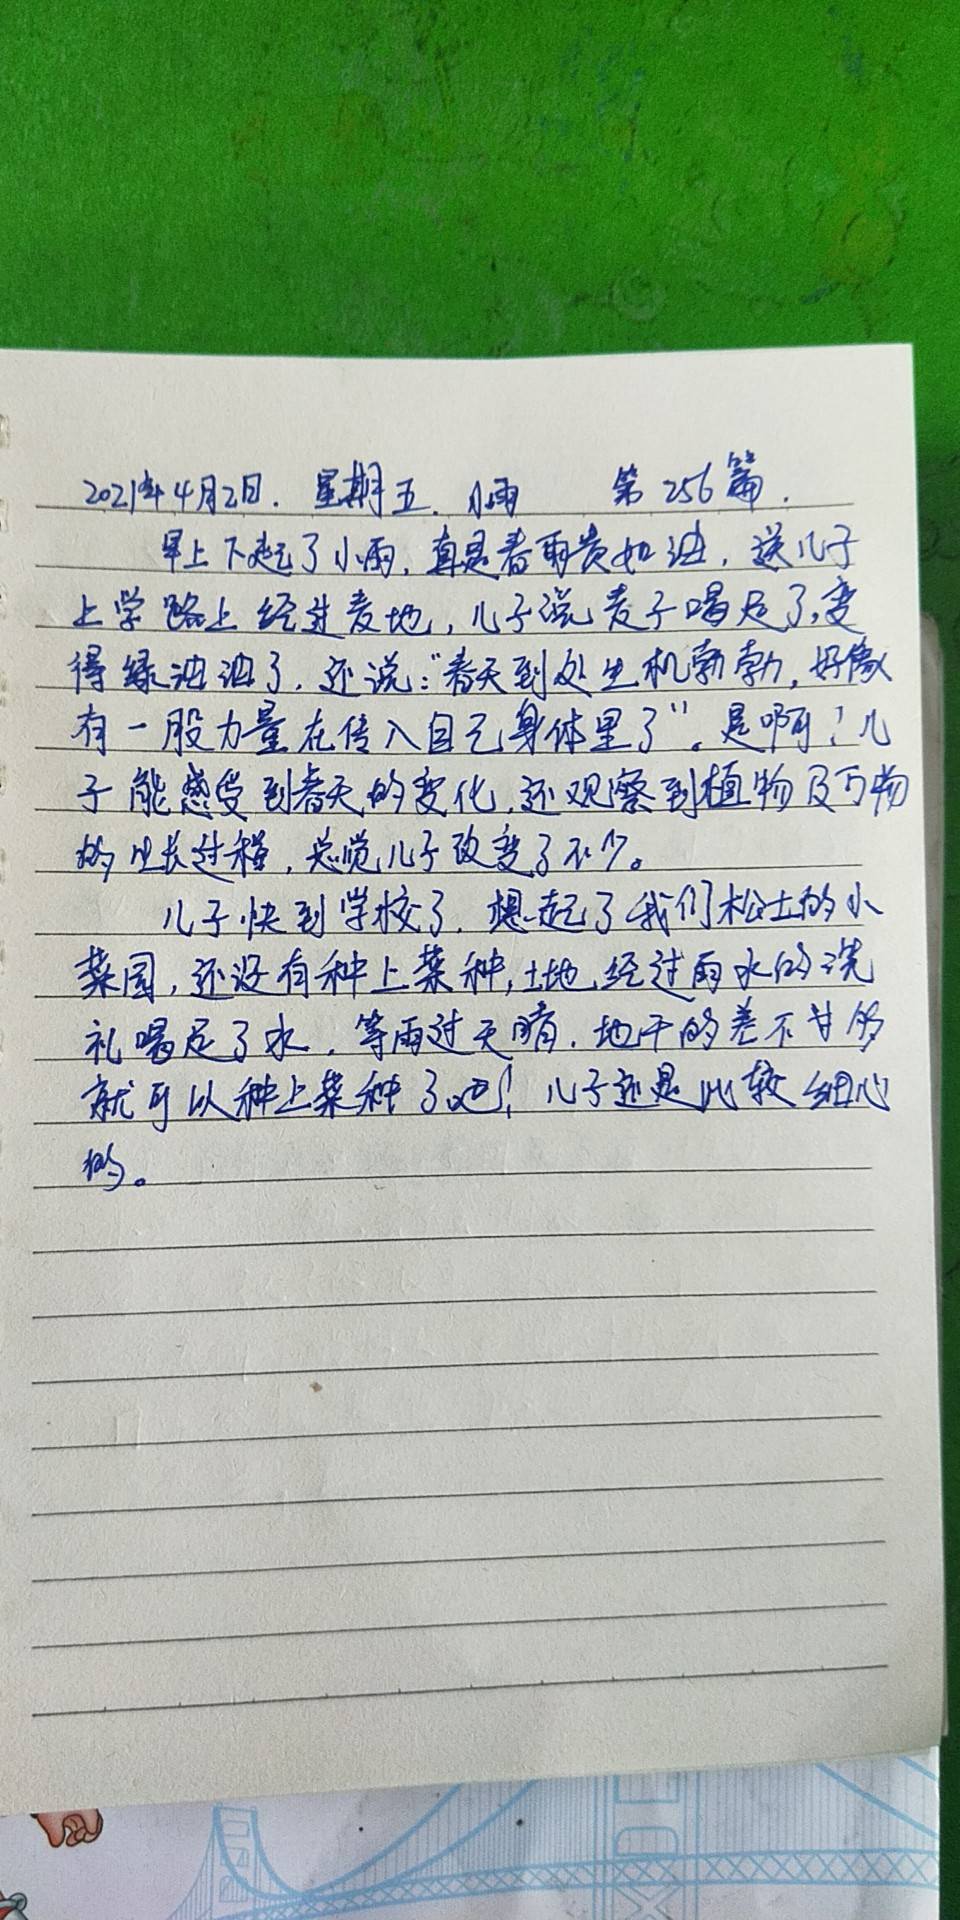 2021年4月2日. 星期五. 小雨 第256篇.
早上下起了小雨,真是春雨贵如油,送儿子
上学路上经过麦地,儿子说麦子喝足了,变
得绿油油了.还说:“春天到处生机勃勃,好像
有一股力量在传入自己身体里了”。是啊!儿
子能感受到春天的变化,还观察到植物及万物
的生长过程,总觉儿子改变了不少。
儿子快到学校了.想起了我们松土的小
菜园,还没有种上菜种,土地经过雨水的洗
礼喝足了水,等雨过天晴.地干的差不多够
就可以种上菜种了吧!儿子还是比较细心
的。